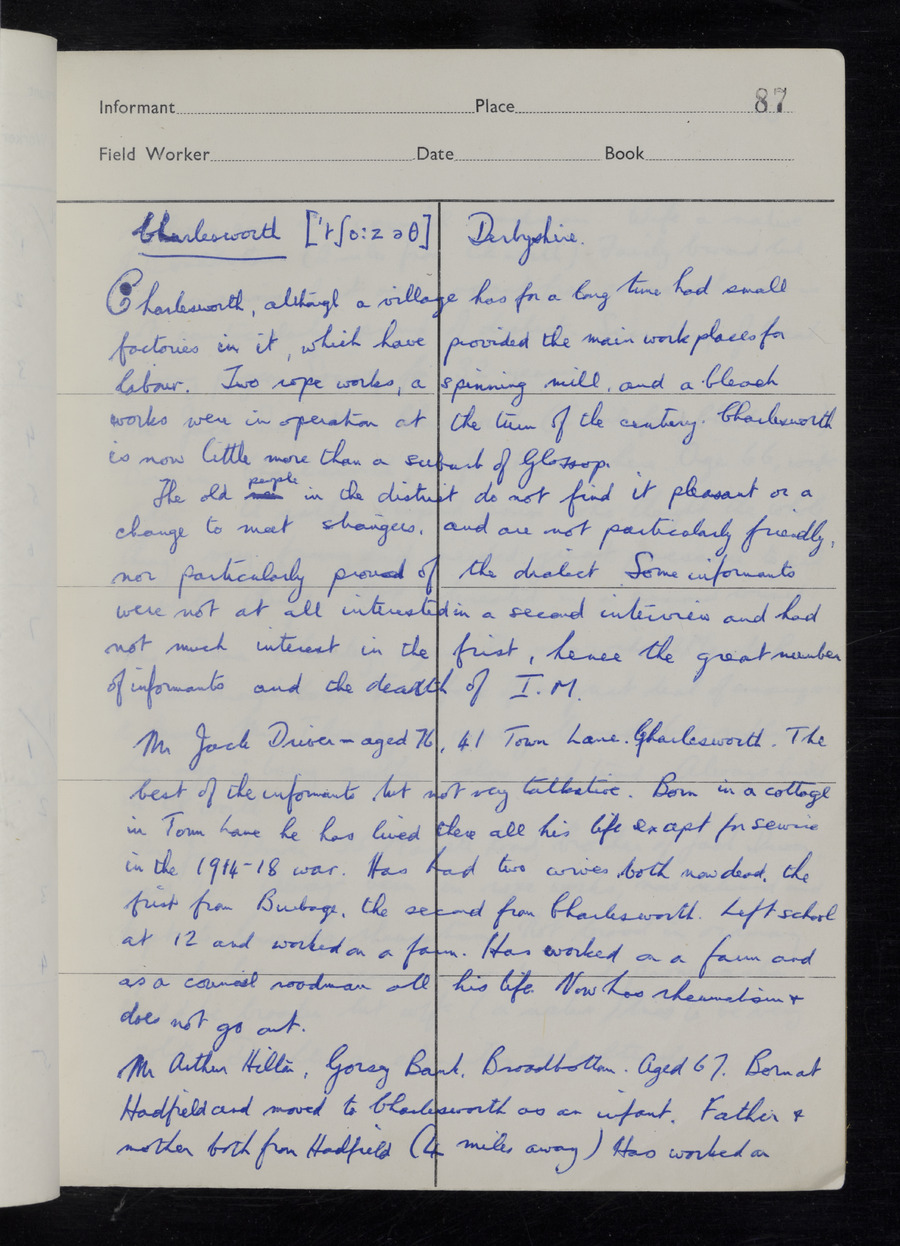 Informant Place 87
Field Worker Date Book
Charlesworth ['tʃo:zəθ] Derbyshire.
Charlesworth, although a village has for a long time had small
factories in it, which have provided the main work places for
labour. Two rope works, a spinning mill, and a bleach
works were in operation at the turn of the century. Charlesworth
is now little more than a suburb of Glossop.
The old people in the district do not find it pleasant or a
change to meet strangers, and are not particularly friendly,
nor particularly proud of the dialect. Some informants
were not at all interested in a second interview and had
not much interest in the first, hence the great number
of informants and the dearth of I.M.
Mr Jack Driver - aged 76, 41 Town Lane. Charlesworth. The
best of the informants but not very talkative. Born in a cottage
in Town Lane he has lived there all his life except for service
in the 1914-18 war. Has had two wives, both now dead, the
first from Burbage, the second from Charlesworth. Left school
at 12 and worked on a farm. Has worked on a farm and
as a council roadman all his life. Now has rheumatism +
does not go out.
Mr Arthur Hilton, Gorsey Bank, Broadbottom. Aged 67. Born at
Hadfield and moved to Charlesworth as an infant. Father +
mother both from Hadfield (4 miles away) Has worked on